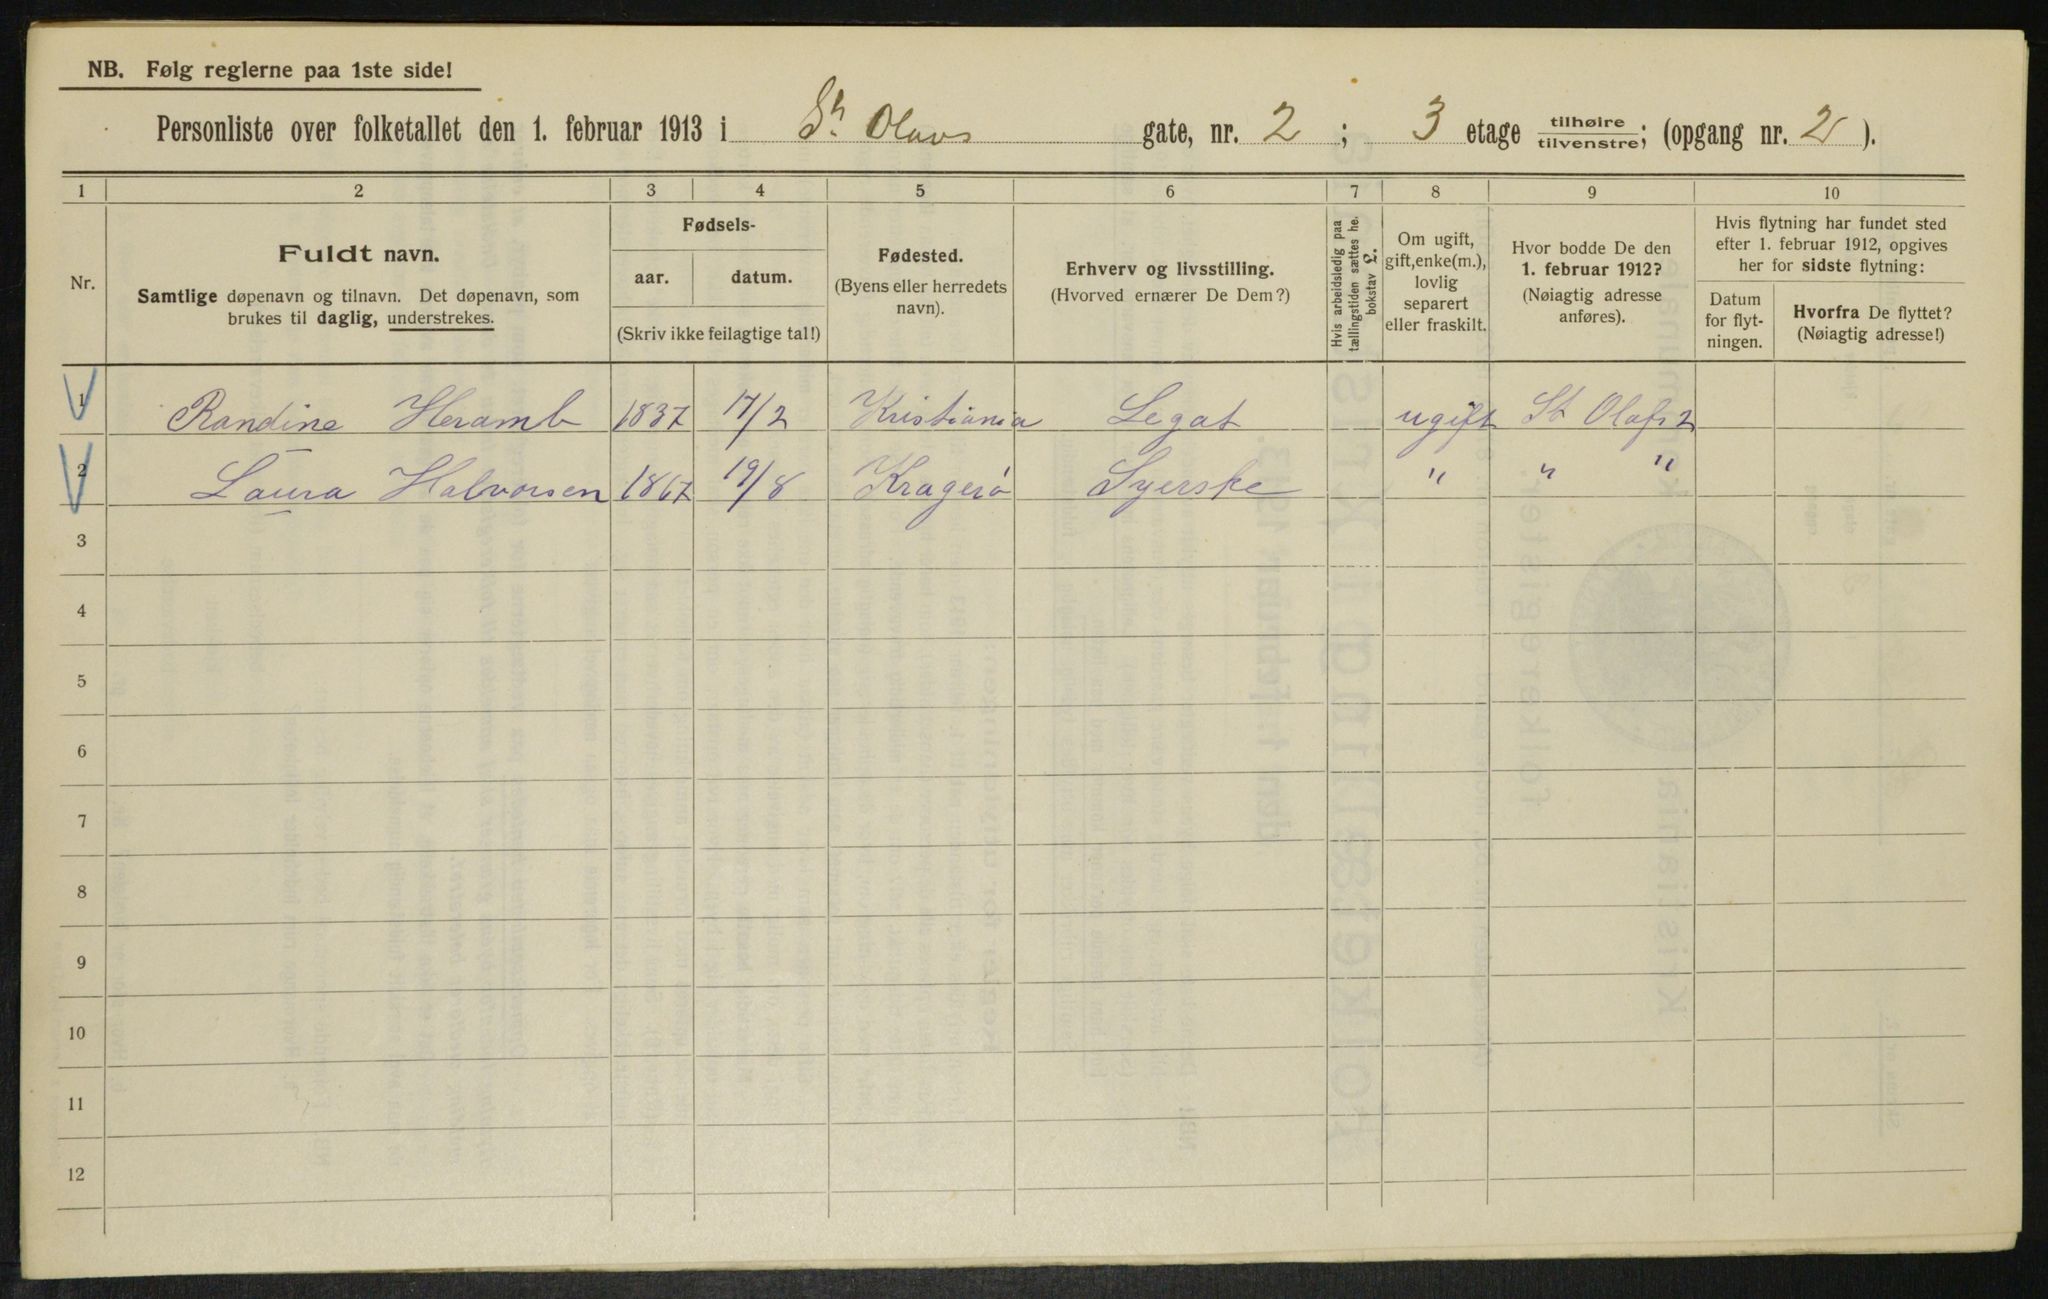 NB. Følg reglerne paa 1ste side!
Personliste over folketallet den 1. februar 1913 i St Olavs gate, nr. 2 ; 3 etage tilhøire/tilvenstre; (opgang nr. 2 ).
1 2 3 4 5 6 7 8 9 10
Nr.
Fuldt navn.
Samtlige døpenavn og tilnavn. Det døpenavn, som
brukes til daglig, understrekes.
Fødsels-
aar. datum.
(Skriv ikke feilagtige tal!)
Fødested.
(Byens eller herredets
navn).
Erhverv og livsstilling.
(Hvorved ernærer De Dem?)
Hvis arbeidsledig paa
tællingstiden sættes he.
bokstav L.
Om ugift,
gift, enke(m.),
lovlig
separert
eller fraskilt.
Hvor bodde De den
1. februar 1912?
(Nøiagtig adresse
anføres).
Hvis flytning har fundet sted
efter 1. februar 1912, opgives
her for sidste flytning:
Datum
for flyt-
ningen.
Hvorfra De flyttet?
(Nøiagtig adresse!)
1 Randine Heramb 1837 17/2 Kristiania Legat ugift St Olafs 2
2 Laura Halvorsen 1867 19/8 Kragerø Syerske " " "
3
4
5
6
7
8
9
10
11
12